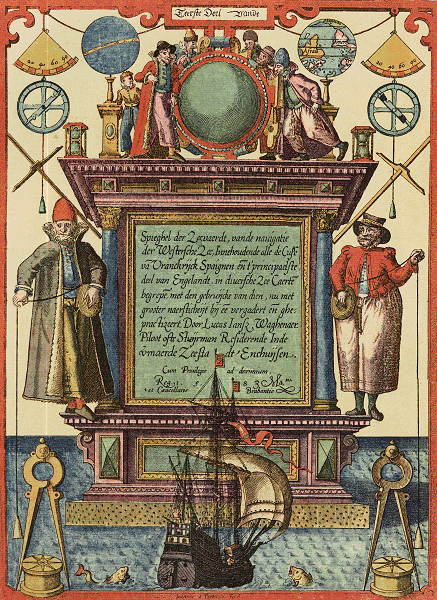 Teerste Deel Vande
20 40 60 90
20 40 60 90
Africa
Spieghel der Zeevaerdt, vande navigatie
der Westersche Zee, Innehoudende alle de Custē
vā Vranckrijck Spaignen eñ t'principaelste
deel van Engelandt, in diversche Zee Caertē
begrepē, met den gebruijcke van dien, nu met
grooter naersticheijt bij eē vergadert eñ ghe-
practizeert, Door Lucas Iansz Waghenaer
Piloot ofte Stuijrman Residerende Inde
vermaerde Zeestadt Enchuijsen.
Cum Privilegio ad decennium.
Reg. 1583 Ma.
Cancellarie Brabantie